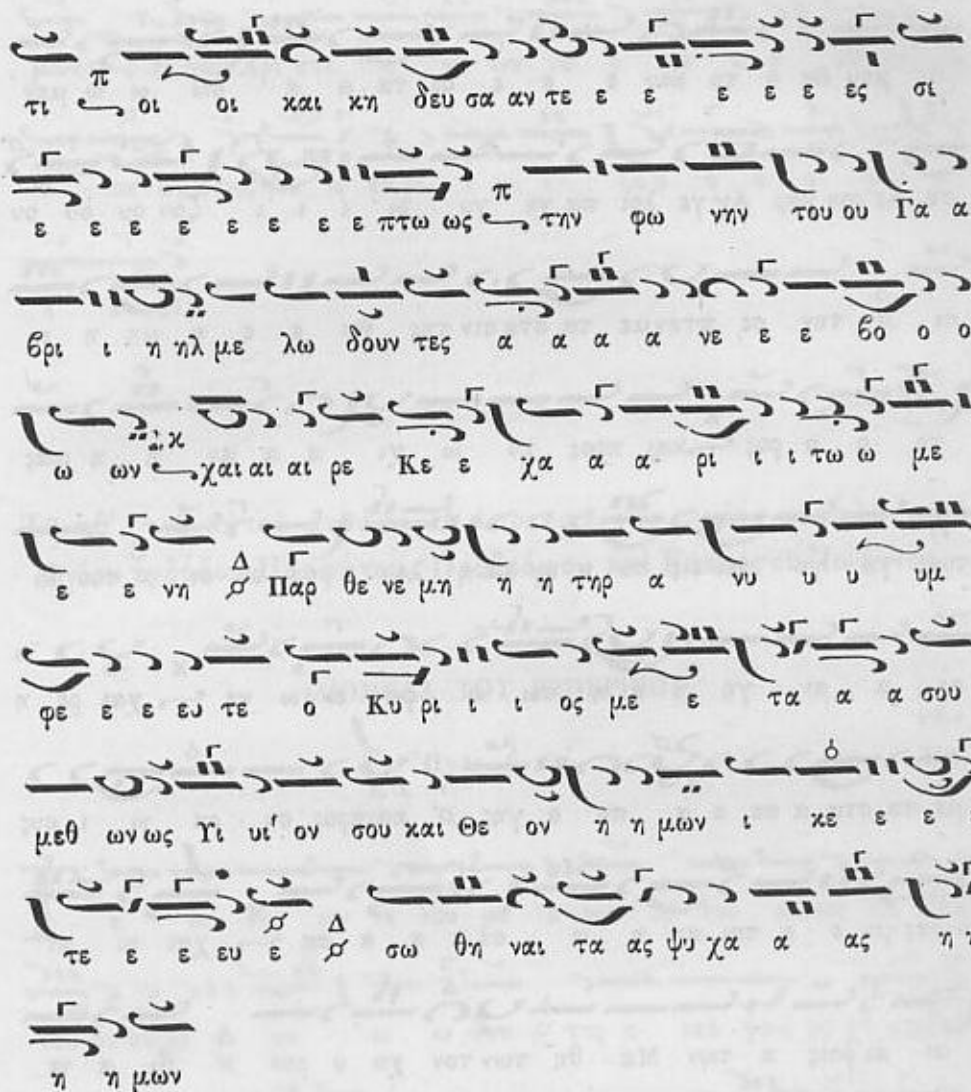 τι π οι οι και κη δευ σα αν τε ε ε ε ε ε ες σι
ε ε ε ε ε ε ε ε πτω ως π την φω νην του ου Γα α
βρι ι η ηλ με λω δουν τες α α α α νε ε ε βο ο ο
ω ων κ χαι αι αι ρε Κε ε χα α α ρι ι ι τω ω με
ε ε νη Δ Παρ θε νε μη η η τηρ α νυ υ υ υμ
φε ε ε ε ευ τε ο Κυ ρι ι ι ος με ε τα α α σου
μεθ ων ως Υι υι ον σου και Θε ον η η μων ι κε ε ε
τε ε ε ευ ε Δ σω θη ναι τα ας ψυ χα α ας η
η η μων